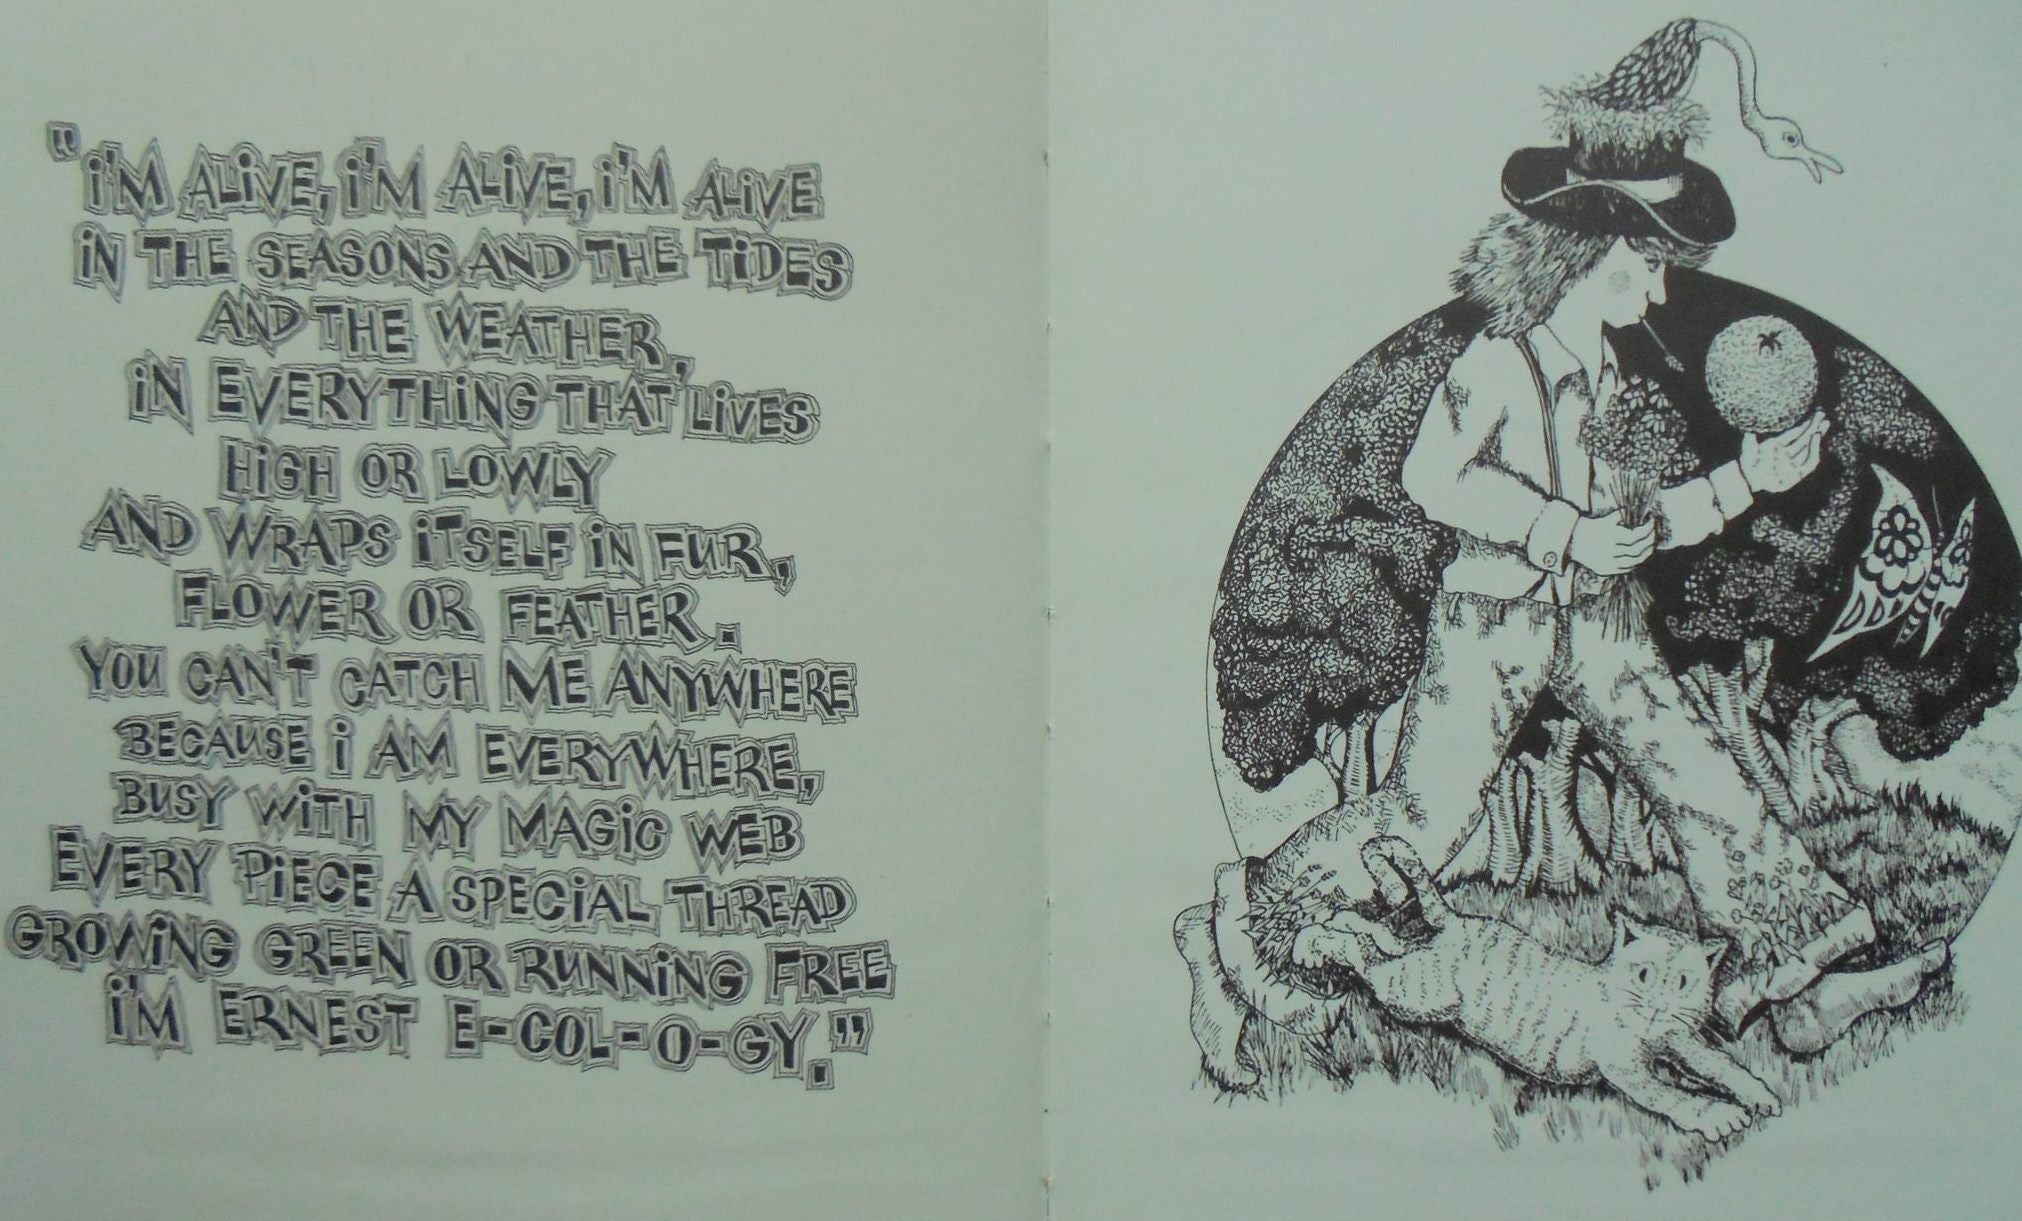 "i'M ALiVE, i'M ALiVE, i'M ALiVE
iN THE SEASONS AND THE TiDES
AND THE WEATHER,
iN EVERYTHiNG THAT LiVES
HiGH OR LOWLY
AND WRAPS iTSELF iN FUR,
FLOWER OR FEATHER.
YOU CAN'T CATCH ME ANYWHERE
BECAUSE i AM EVERYWHERE,
BUSY WiTH MY MAGiC WEB
EVERY PiECE A SPECiAL THREAD
GROWiNG GREEN OR RUNNiNG FREE
i'M ERNEST E-COL-O-GY."